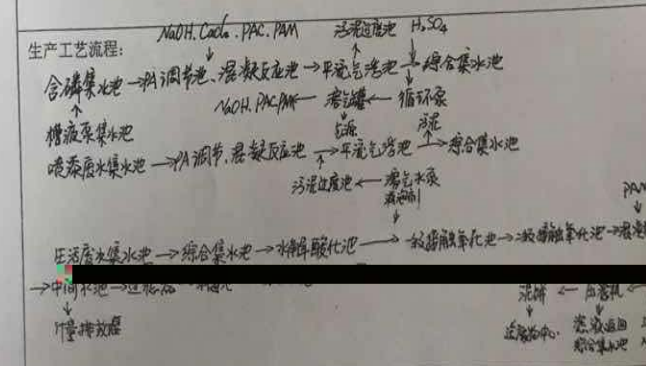 NaOH.CaCl₂.PAC.PAM 污泥过度池 H₂SO₄
生产工艺流程:
含磷集水池→PH调节池、混凝反应池→平流气浮池→综合集水池
NaOH.PAC.PAM 溶气罐←循环泵
槽液泵集水池 气源 污泥
喷漆废水集水池→PH调节、混凝反应池→平流气浮池→综合集水池
污泥过度池←溶气水泵
消泡剂
PAM
生活废水集水池→综合集水池→水解酸化池→一级接触氧化池→二级接触氧化池→混凝
→中间水池→
泥饼←压滤机
计量排放
滤液返回
综合集水池